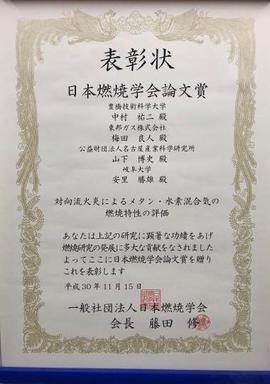 表彰状
日本燃焼学会論文賞
豊橋技術科学大学
中村 祐二 殿
東邦ガス株式会社
梅田 良人 殿
公益財団法人名古屋産業科学研究所
山下 博史 殿
岐阜大学
安里 勝雄 殿
対向流火炎によるメタン・水素混合気の
燃焼特性の評価
あなたは上記の研究に顕著な功績をあげ
燃焼研究の発展に多大な貢献をなされました
よってここに日本燃焼学会論文賞を贈り
これを表彰します
平成30年11月15日
一般社団法人日本燃焼学会
会長 藤田 修